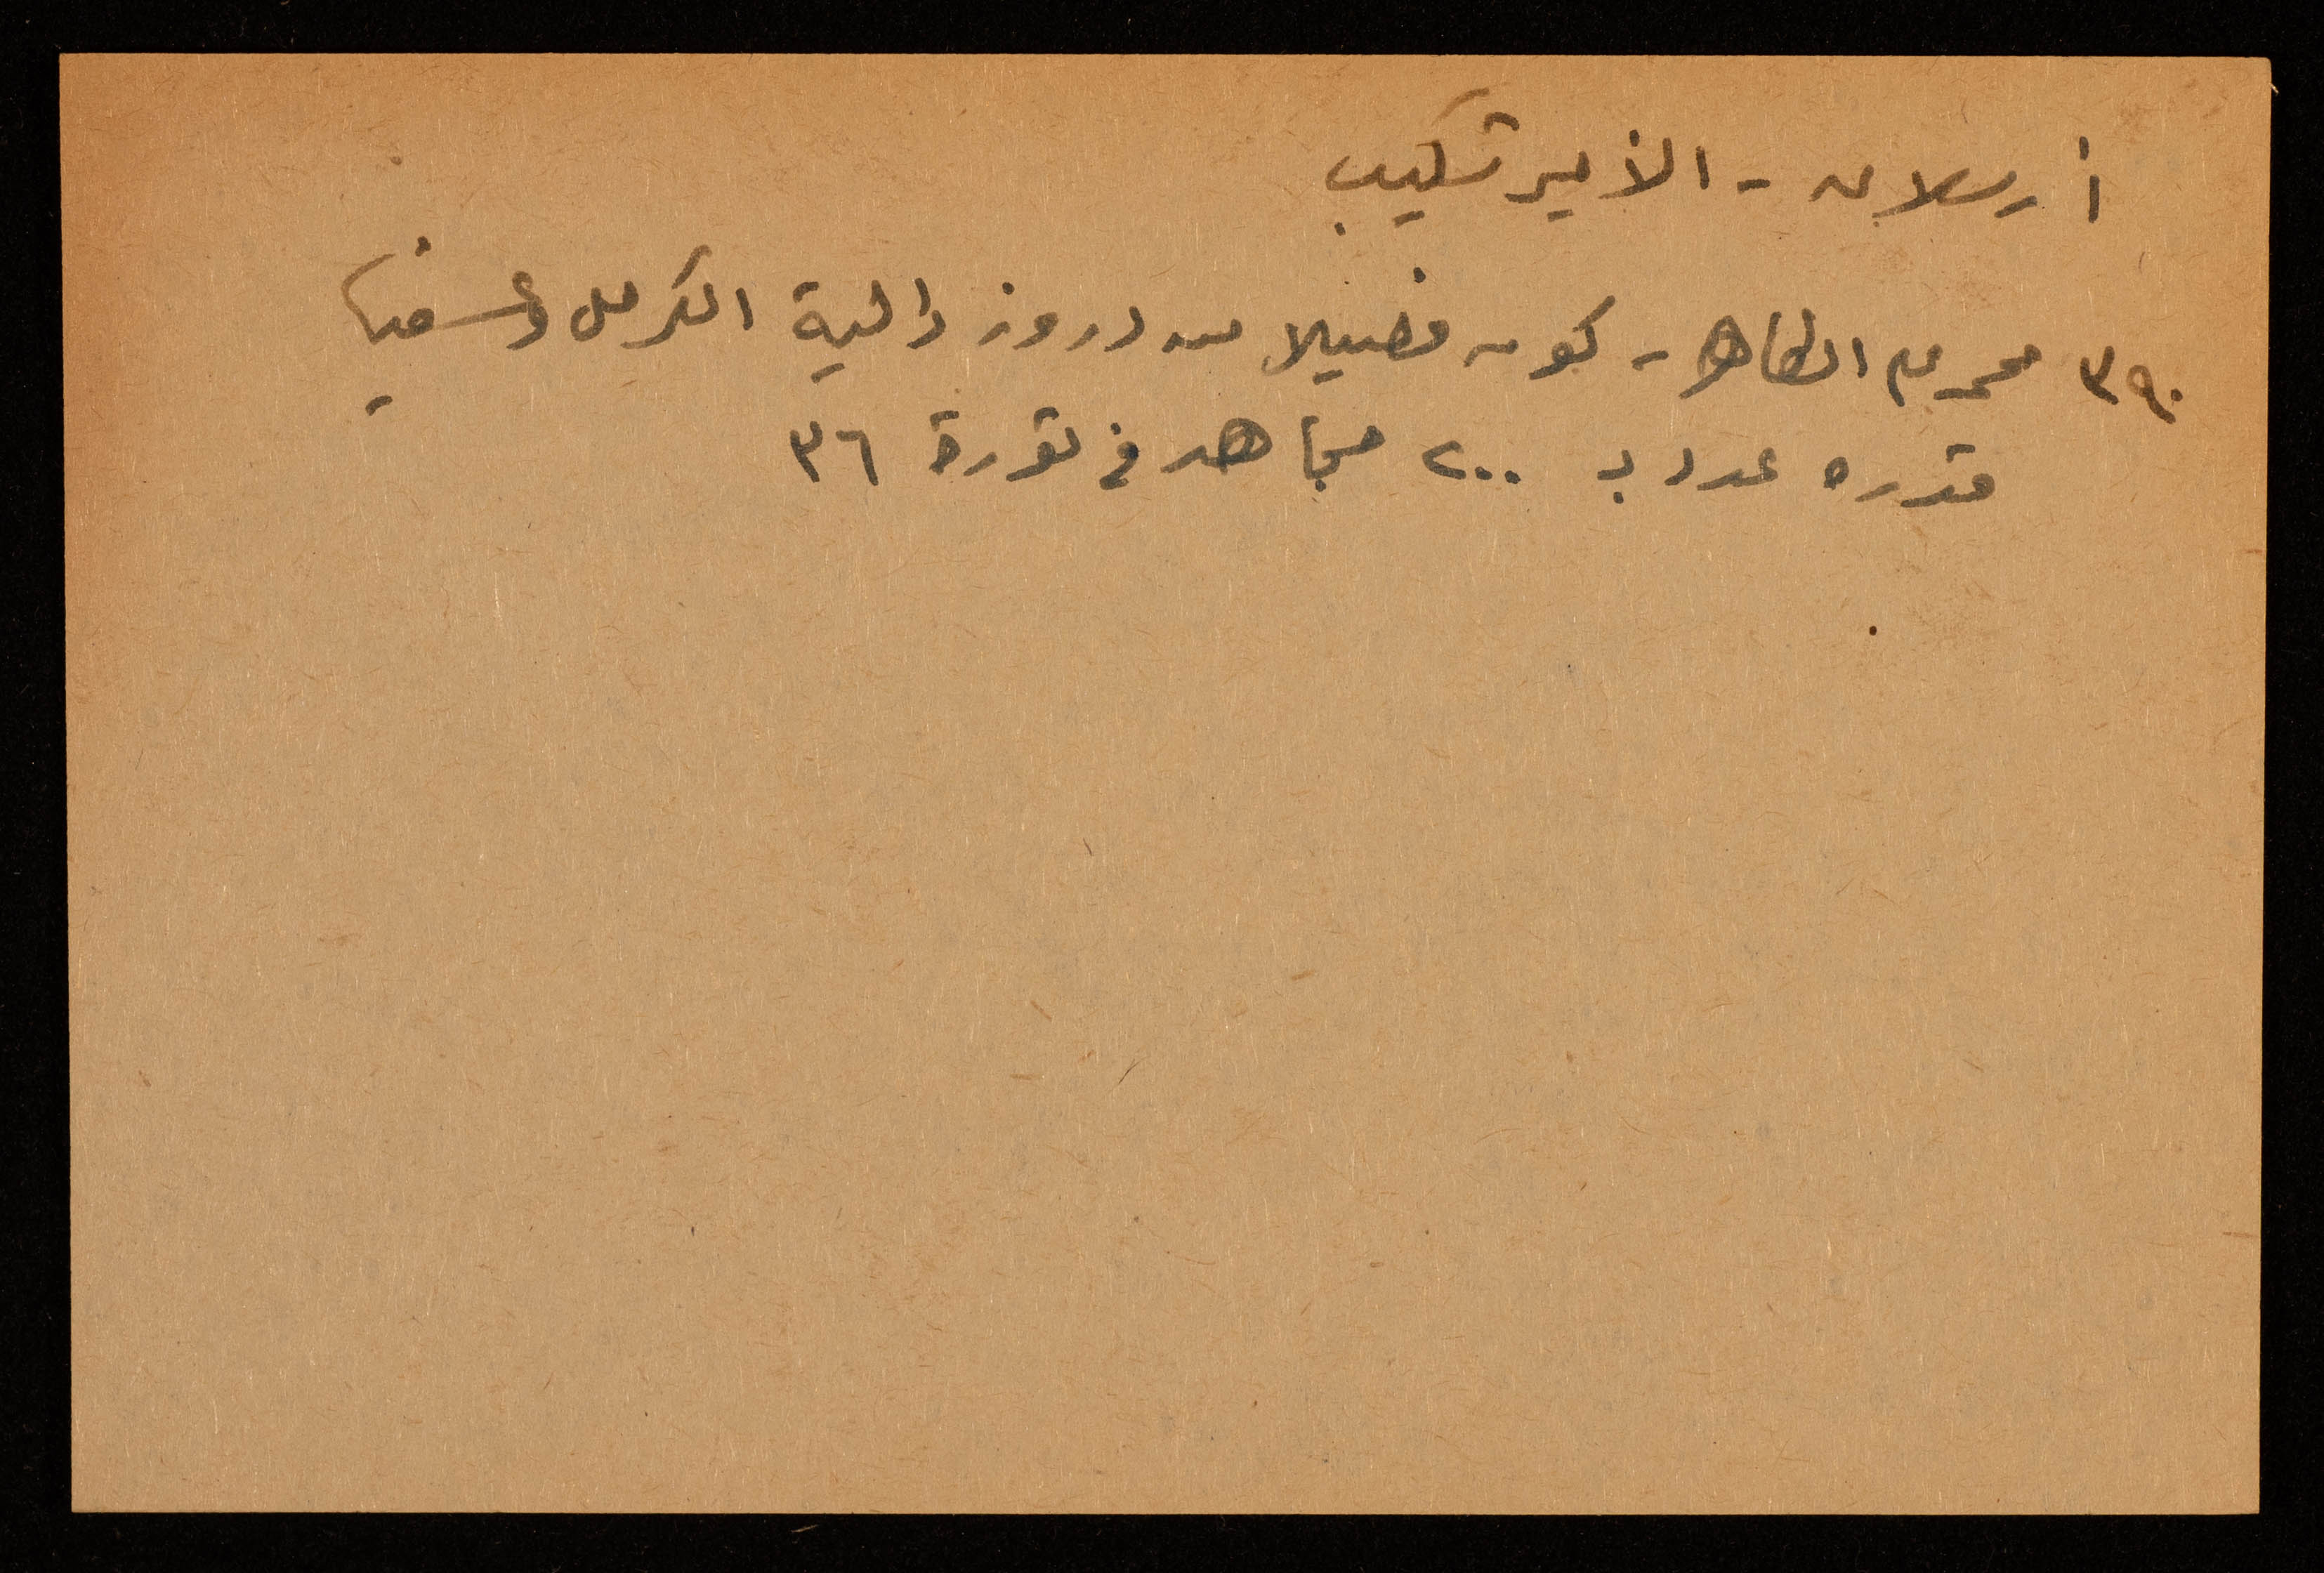 أرسلان - الأمير شكيب
٣٩٠ محمد الطاهر - كون فصيلا من دروز دالية الكرمل وعسفيا
قدره عدد ب ٢٠٠ مجاهد في ثورة ٣٦